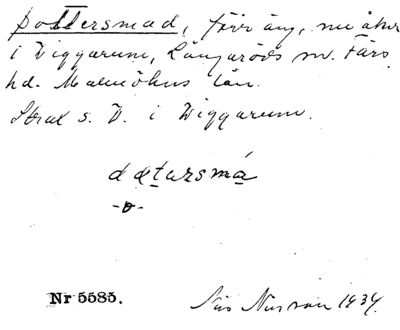 Dottersmad, förr äng, nu åker
i Viggarum, Långaröds sn. Färs
hd. Malmöhus län.
Strax s. V. i Viggarum.
dǫtarsmá
-o-
Nr 5585.
Nils Nilsson 1934.